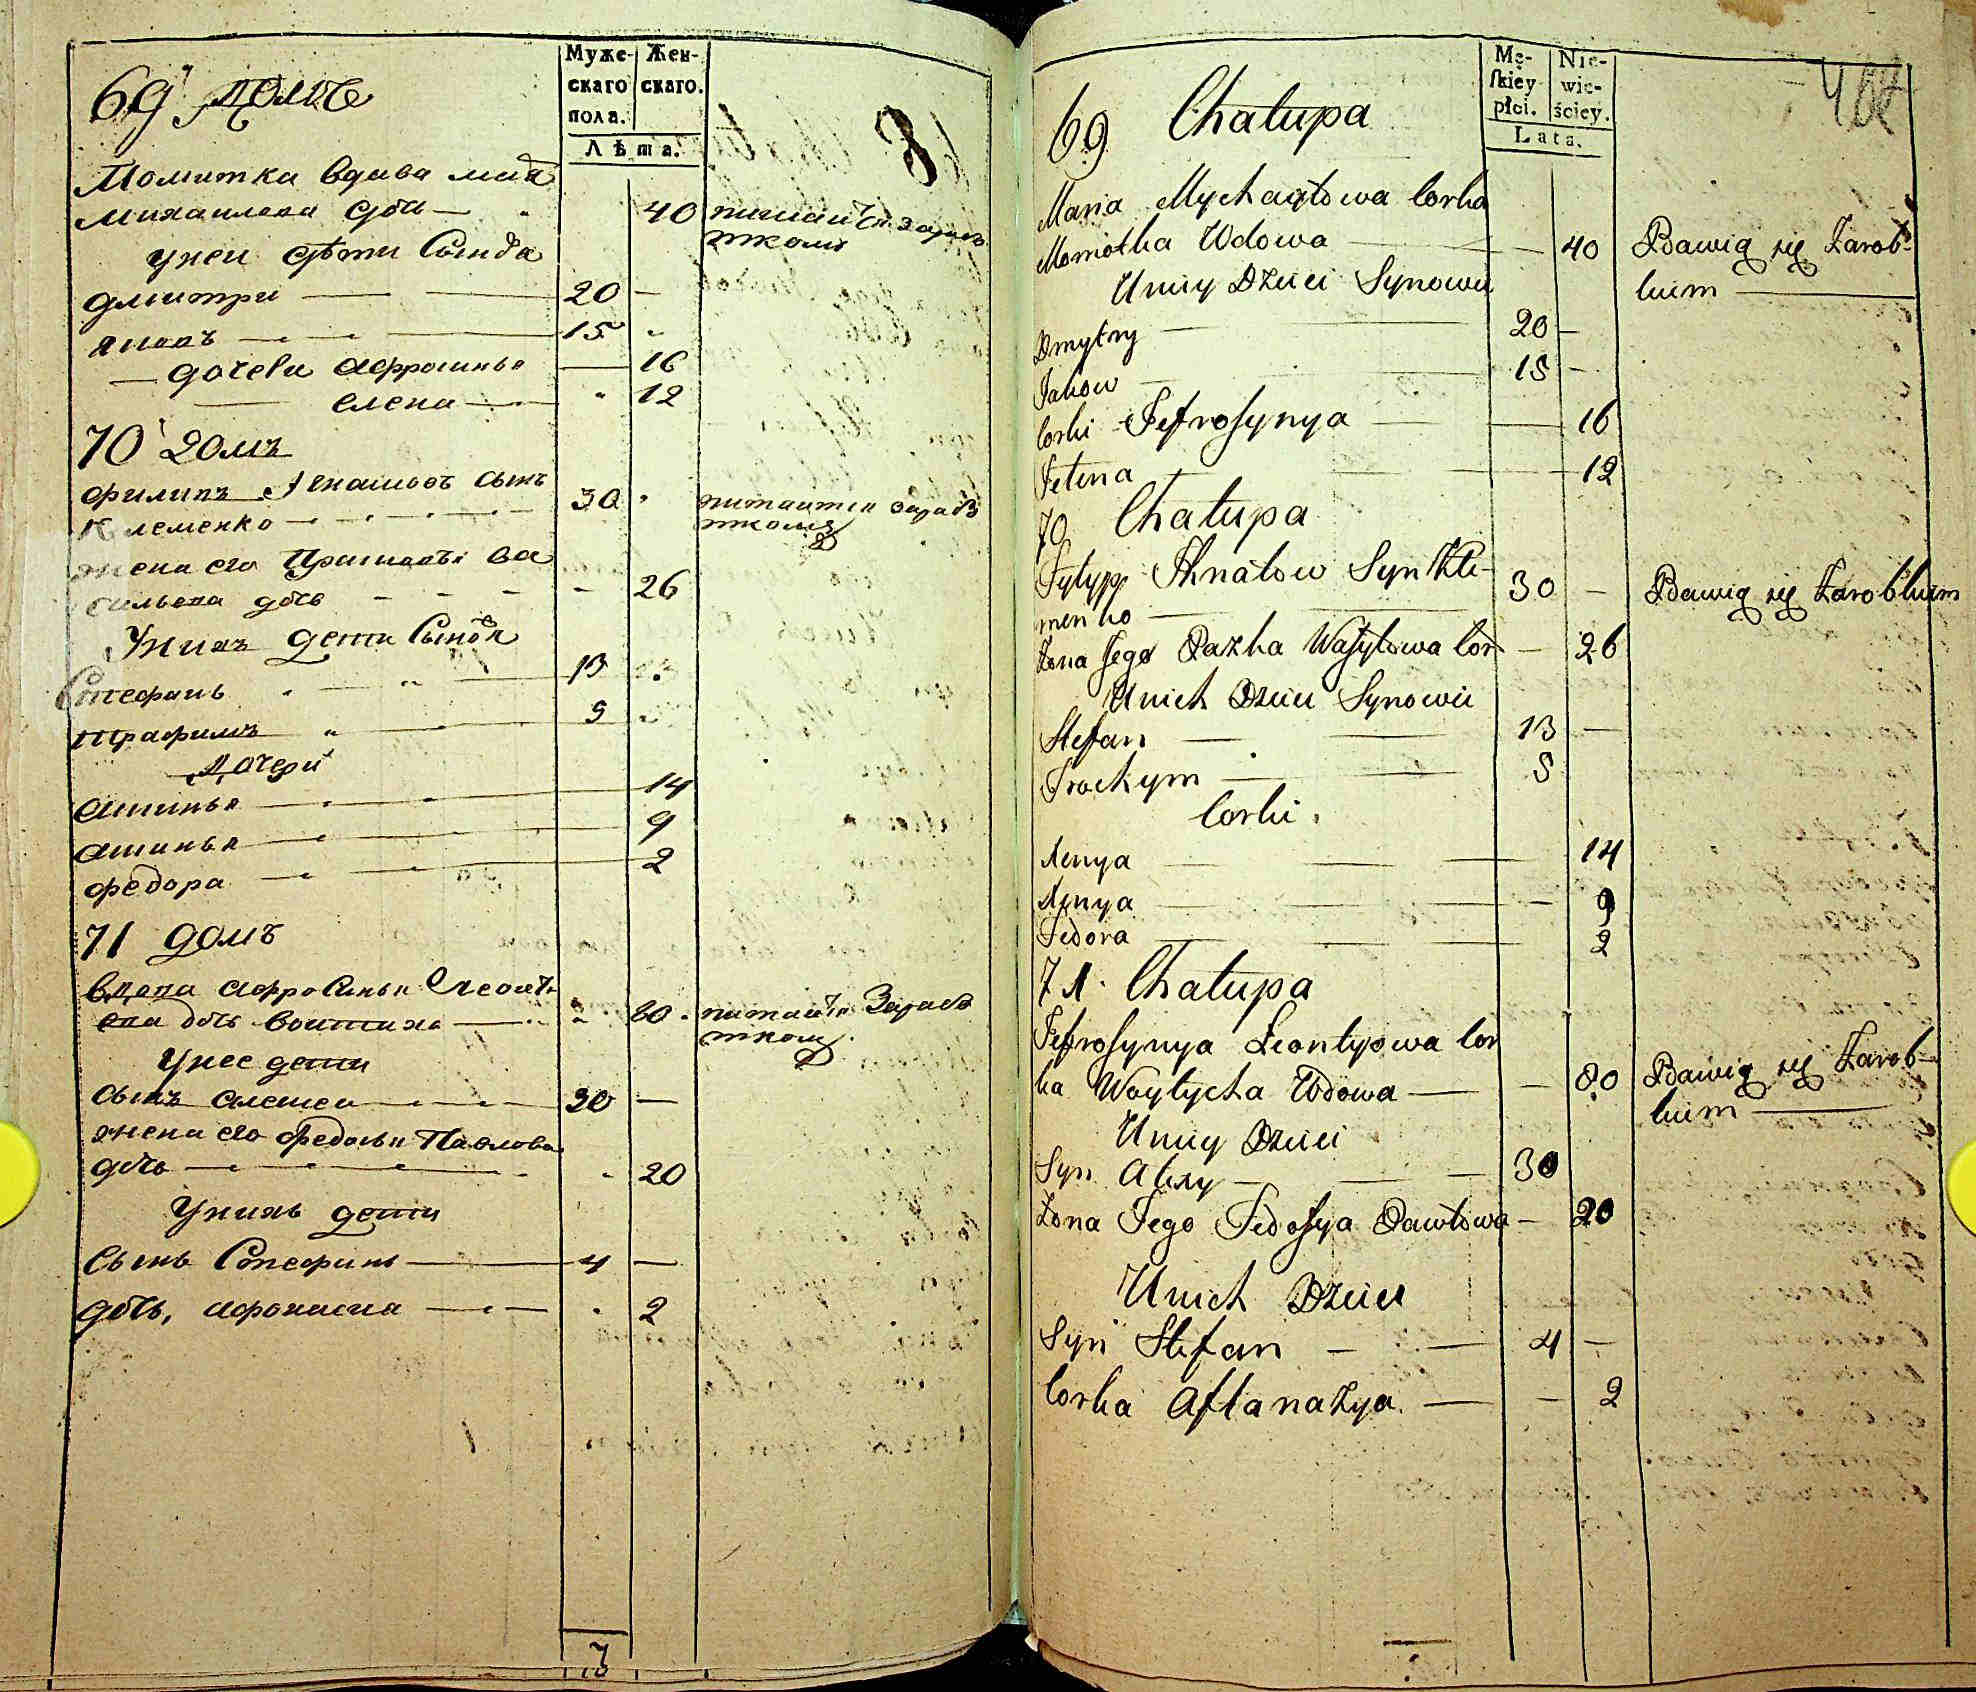 Муже-
скаго
пола.
Жен-
скаго.
Лѣта.
8
69 домъ
Момитка вдава
михаилава дочь — 40 питаитца зараб
ткомъ
унеи дѣти Сынова
дмитри — 20 —
яковъ — 15
— дочери афросинья — 16
елена — 12
70 домъ
филипъ Сынъ
Клеменко — 30 питаитса зараб
ткомъ
жена его ва
сильева дочь — 26
Унихъ дети Сынов
Стефанъ — 13
трафимъ — 5
дочери
аминья — 14
аминья — 9
федора — 2
71 домъ
вдова афросинья
ева дочь воитиха — 80 питаитца Зараб
ткомъ
Унее дети
Сынъ алексеи — 30 —
жена его федосья Павлова
дочь — 20
Унихъ дети
Сынъ Стефанъ — 4 —
дочь, афонасия — 2
7
Mę-
skiey
płci.
Nie-
wie-
ściey.
Lata.
69 Chałupa
Maria Mychayłowa Corka
Momotka Wdowa — 40 Bawią się Zarob-
kiem
Uniey Dzieci Synowie
Dmytry — 20 —
Jakow — 15 —
Corki Fefrosynya — 16
Jelena — 12
70 Chałupa
Fylypp Ihnatow Syn Kle-
menko — 30 — Bawią się Zarobkiem
Żona Jego Parzka Wasylowa Cor — 26
Unich Dzieci Synowie
Stefan — 13 —
Trochym — 5
Corki.
Xenya — 14
Xenya — 9
Fedora — 2
71. Chałupa
Fefrosynya Leontyowa Cor
ka Woytycha Wdowa — 80 Bawią się Zarob-
kiem
Uniey Dzieci
Syn Alexy — 30
Żona Jego Fedosya Pawłowa — 20
Unich Dzieci
Syn Stefan — 4 —
Corka Aftanazya — 2